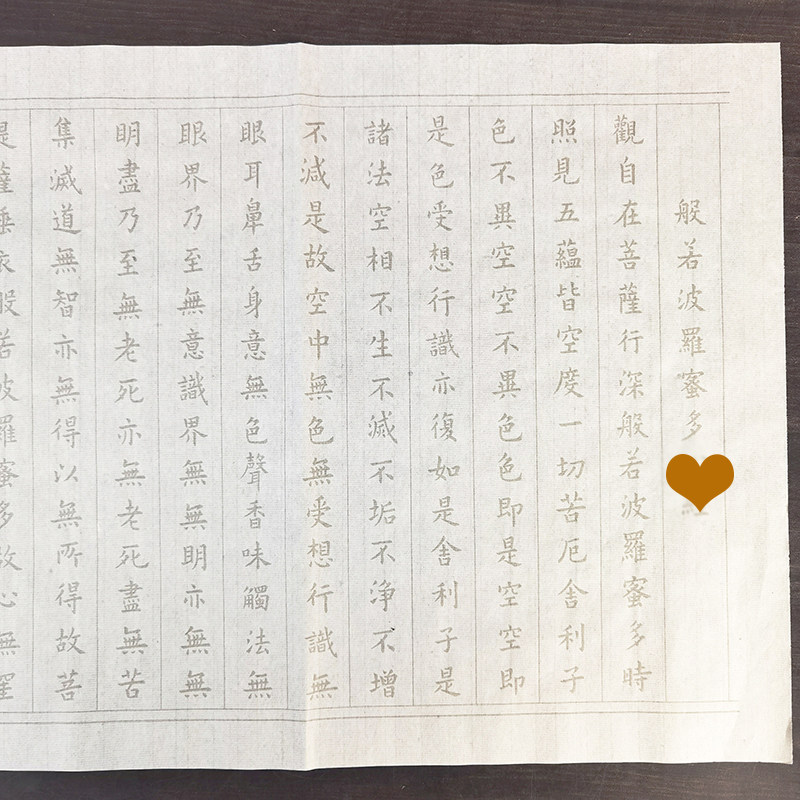 般若波羅蜜多
觀自在菩薩行深般若波羅蜜多時
照見五蘊皆空度一切苦厄舍利子
色不異空空不異色色即是空空即
是色受想行識亦復如是舍利子是
諸法空相不生不滅不垢不淨不增
不減是故空中無色無受想行識無
眼耳鼻舌身意無色聲香味觸法無
眼界乃至無意識界無無明亦無無
明盡乃至無老死亦無老死盡無苦
集滅道無智亦無得以無所得故菩
提薩埵依般若波羅蜜多故心無罣